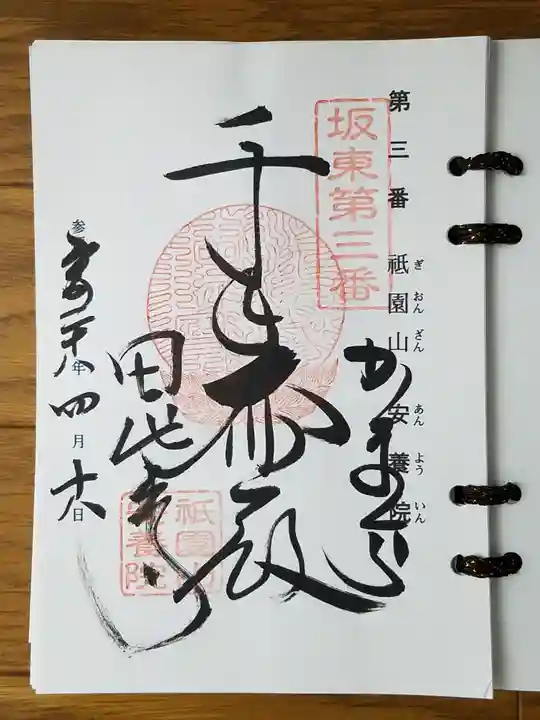 第三番 祇園山 安養院
ぎおんざん あんよういん
坂東第三番
かまくら
千手殿
田代寺
祇園山
安養院
参
年四月十八日